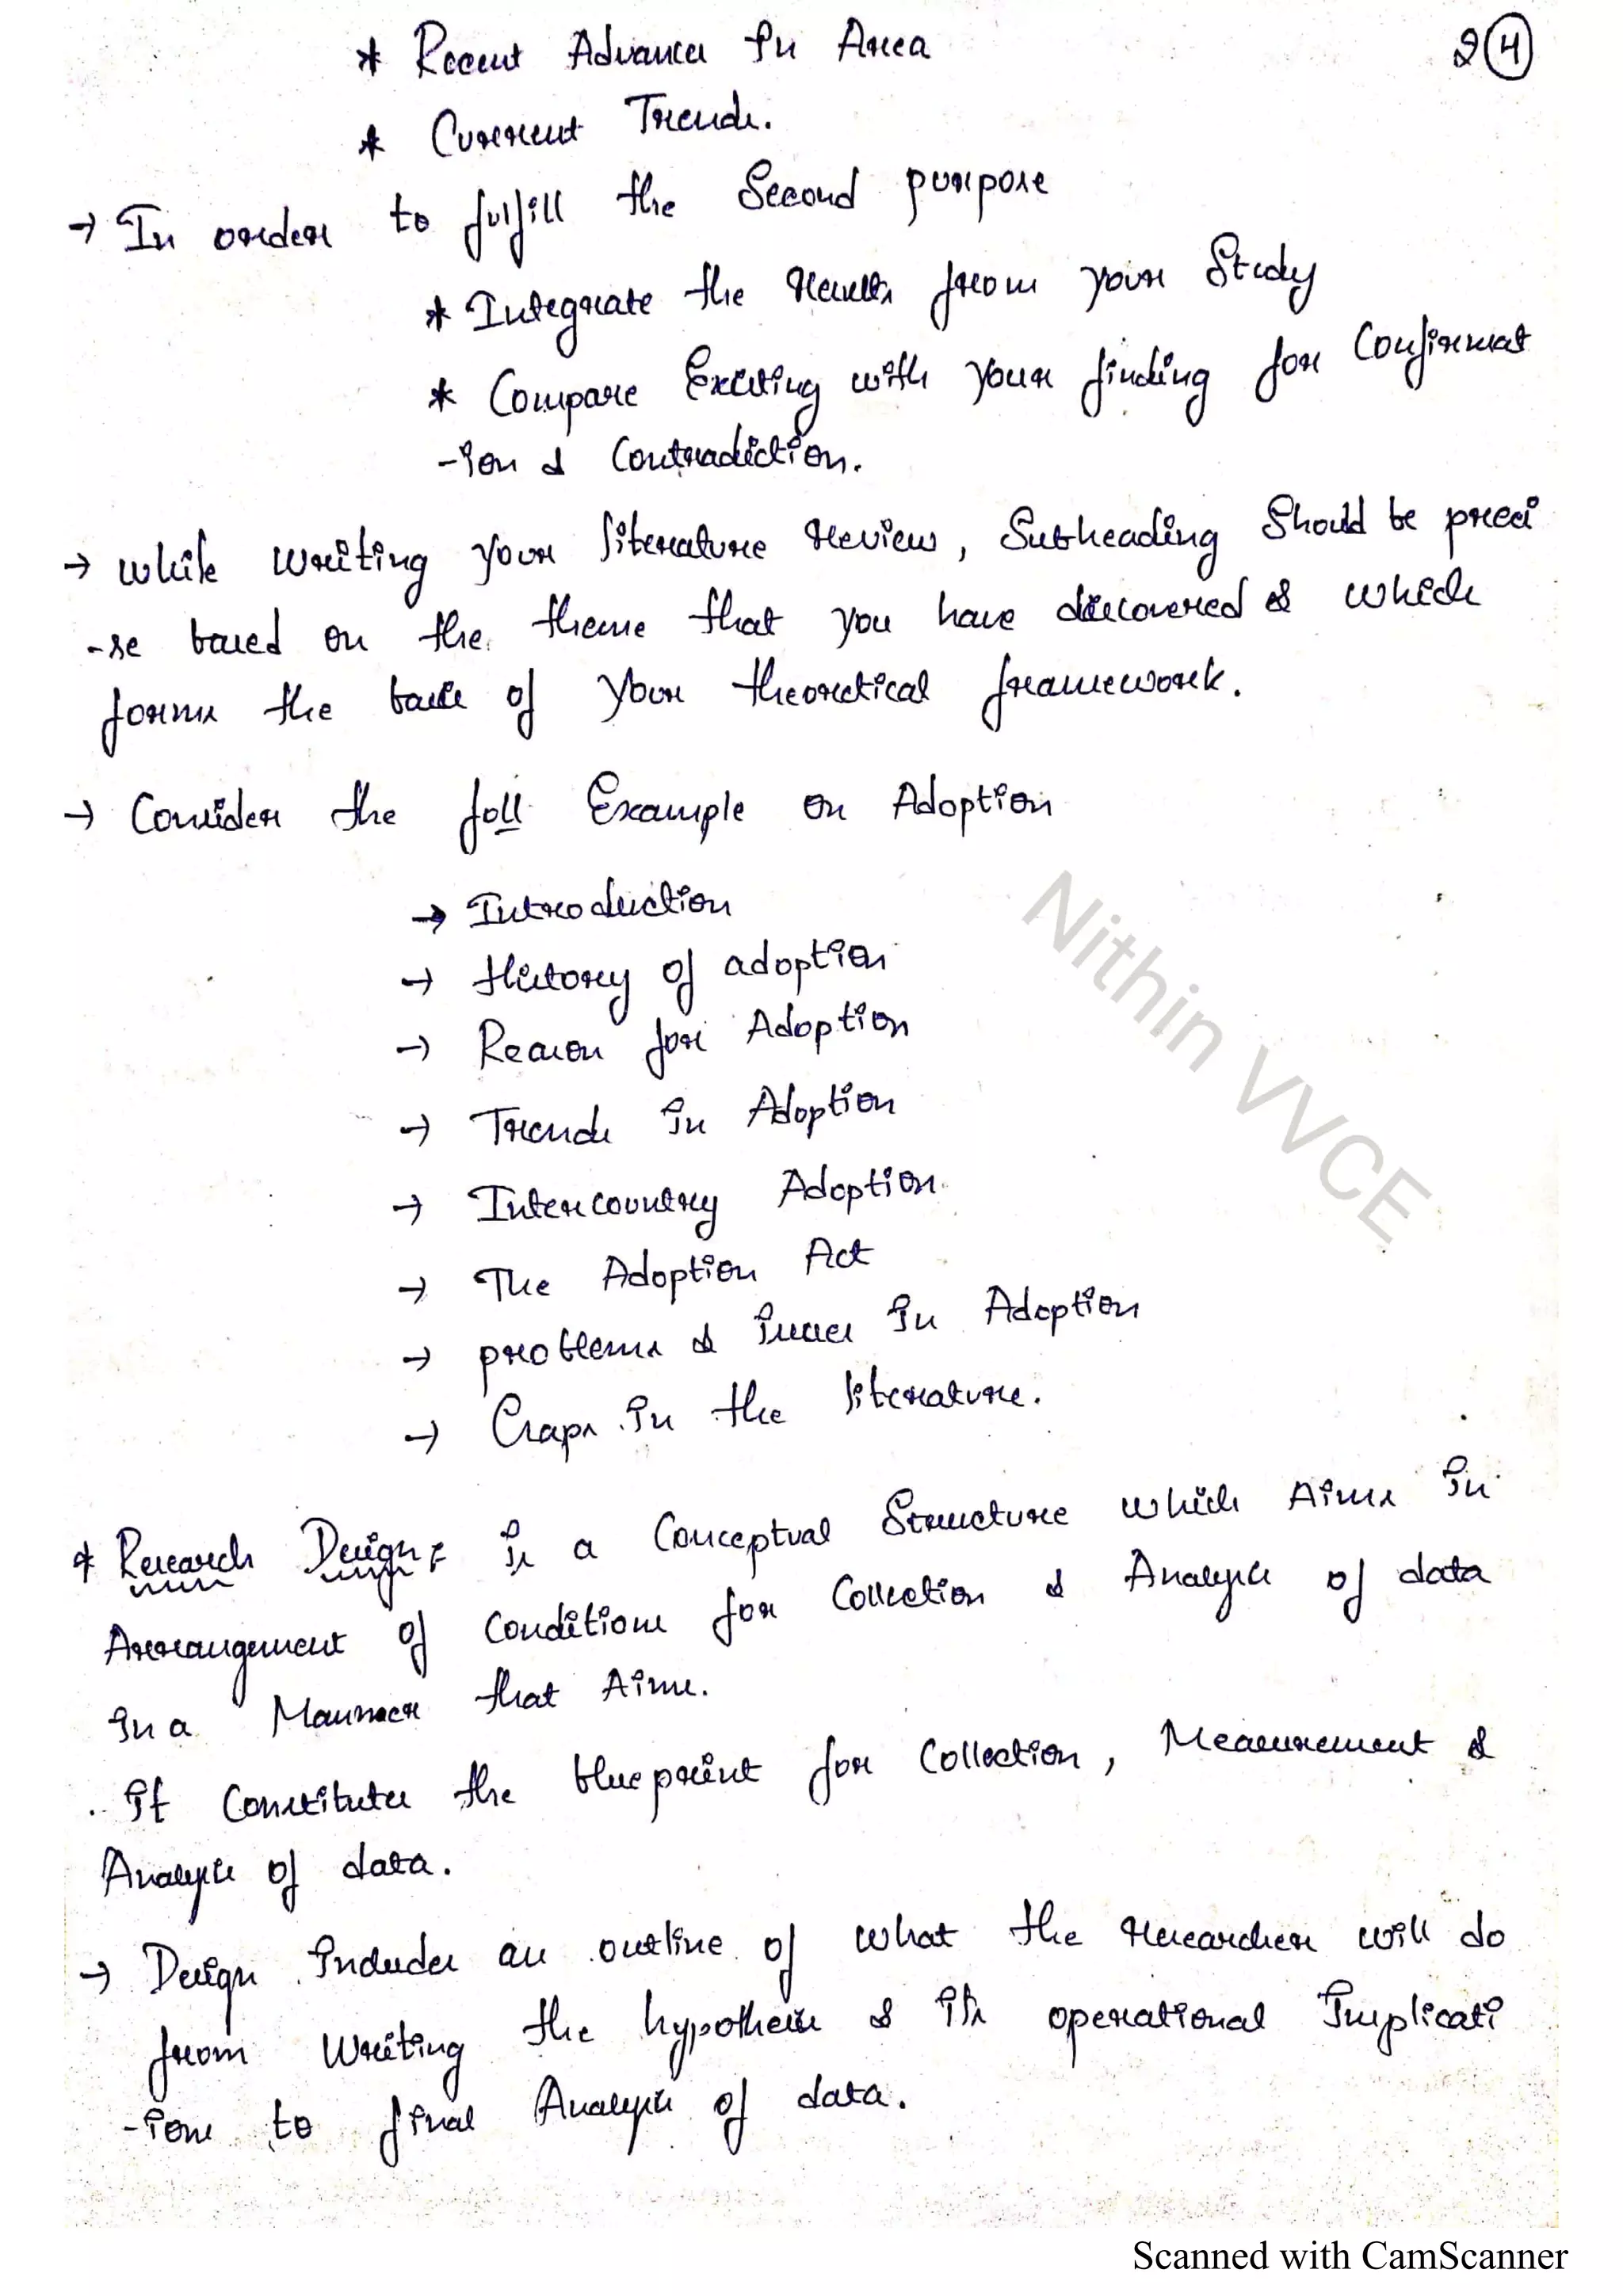 * Recent Advances in Area
2 (4)
* Current Trends.
→ In order to fulfill the Second purpose
* Integrate the results from your Study
* Compare Existing with your finding for Confirmat
-ion & Contradiction.
→ while writing your literature review, Subheading Should be preci
-se based on the theme that you have discovered & which
forms the basis of your theoretical framework.
→ Consider the foll Example on Adoption
→ Introduction
→ History of adoption
→ Reason for Adoption
→ Trends in Adoption
→ Intercountry Adoption
→ The Adoption Act
→ problems & issues in Adoption
→ Gaps in the literature.
Nithin VVCE
* Research Design: is a Conceptual Structure which Aims in
Arrangement of Conditions for Collection & Analysis of data
in a Manner that Aims.
. it Constitutes the blueprint for Collection, Measurement &
Analysis of data.
→ Design includes an outline of what the researcher will do
from writing the hypothesis & its operational implicati
-ions to final Analysis of data.
Scanned with CamScanner